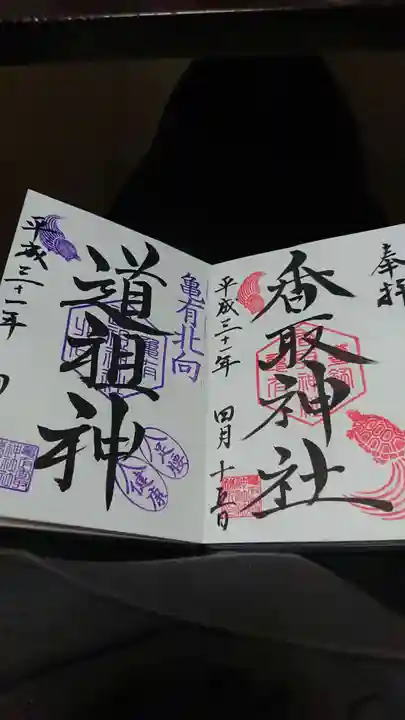 奉拝
香取神社
平成三十一年 四月十五日
亀有北向
道祖神
足腰
健康
平成三十一年